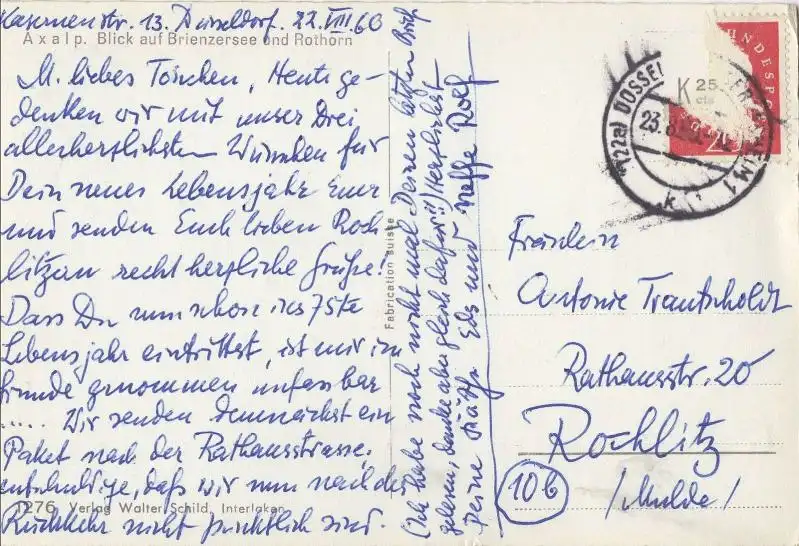 Kasernenstr. 13. Düsseldorf. 22.VIII.60
Axalp. Blick auf Brienzersee und Rothorn
M. liebes Tönchen, Heute ge-
denken wir mit unser Drei
allerherzlichsten Wünschen für
Dein neues Lebensjahr Eurer
und senden Euch lieben Roch
litzern recht herzliche Grüße!
Dass Du nun schon ins 75te
Lebensjahr eintrittst, ist mir im
Grunde genommen unfassbar
..... Wir senden demnächst ein
Paket nach der Rathausstrasse,
entschuldige, daß wir nun nach der
Rückkehr nicht pünktlich sind.
1276 Verlag Walter Schild, Interlaken
(Ich habe noch nicht mal Deinen letzten Brief
gelesen, danke aber gleich dafür!!) Herzlichst
Deine Käthe Eds und Neffe Rolf
Fabrication suisse
K 25
cts
(22a) DÜSSEL
23.8.
k
Fräulein
Antonie Trautscholdt
Rathausstr. 20
Rochlitz
10b
/Mulde/